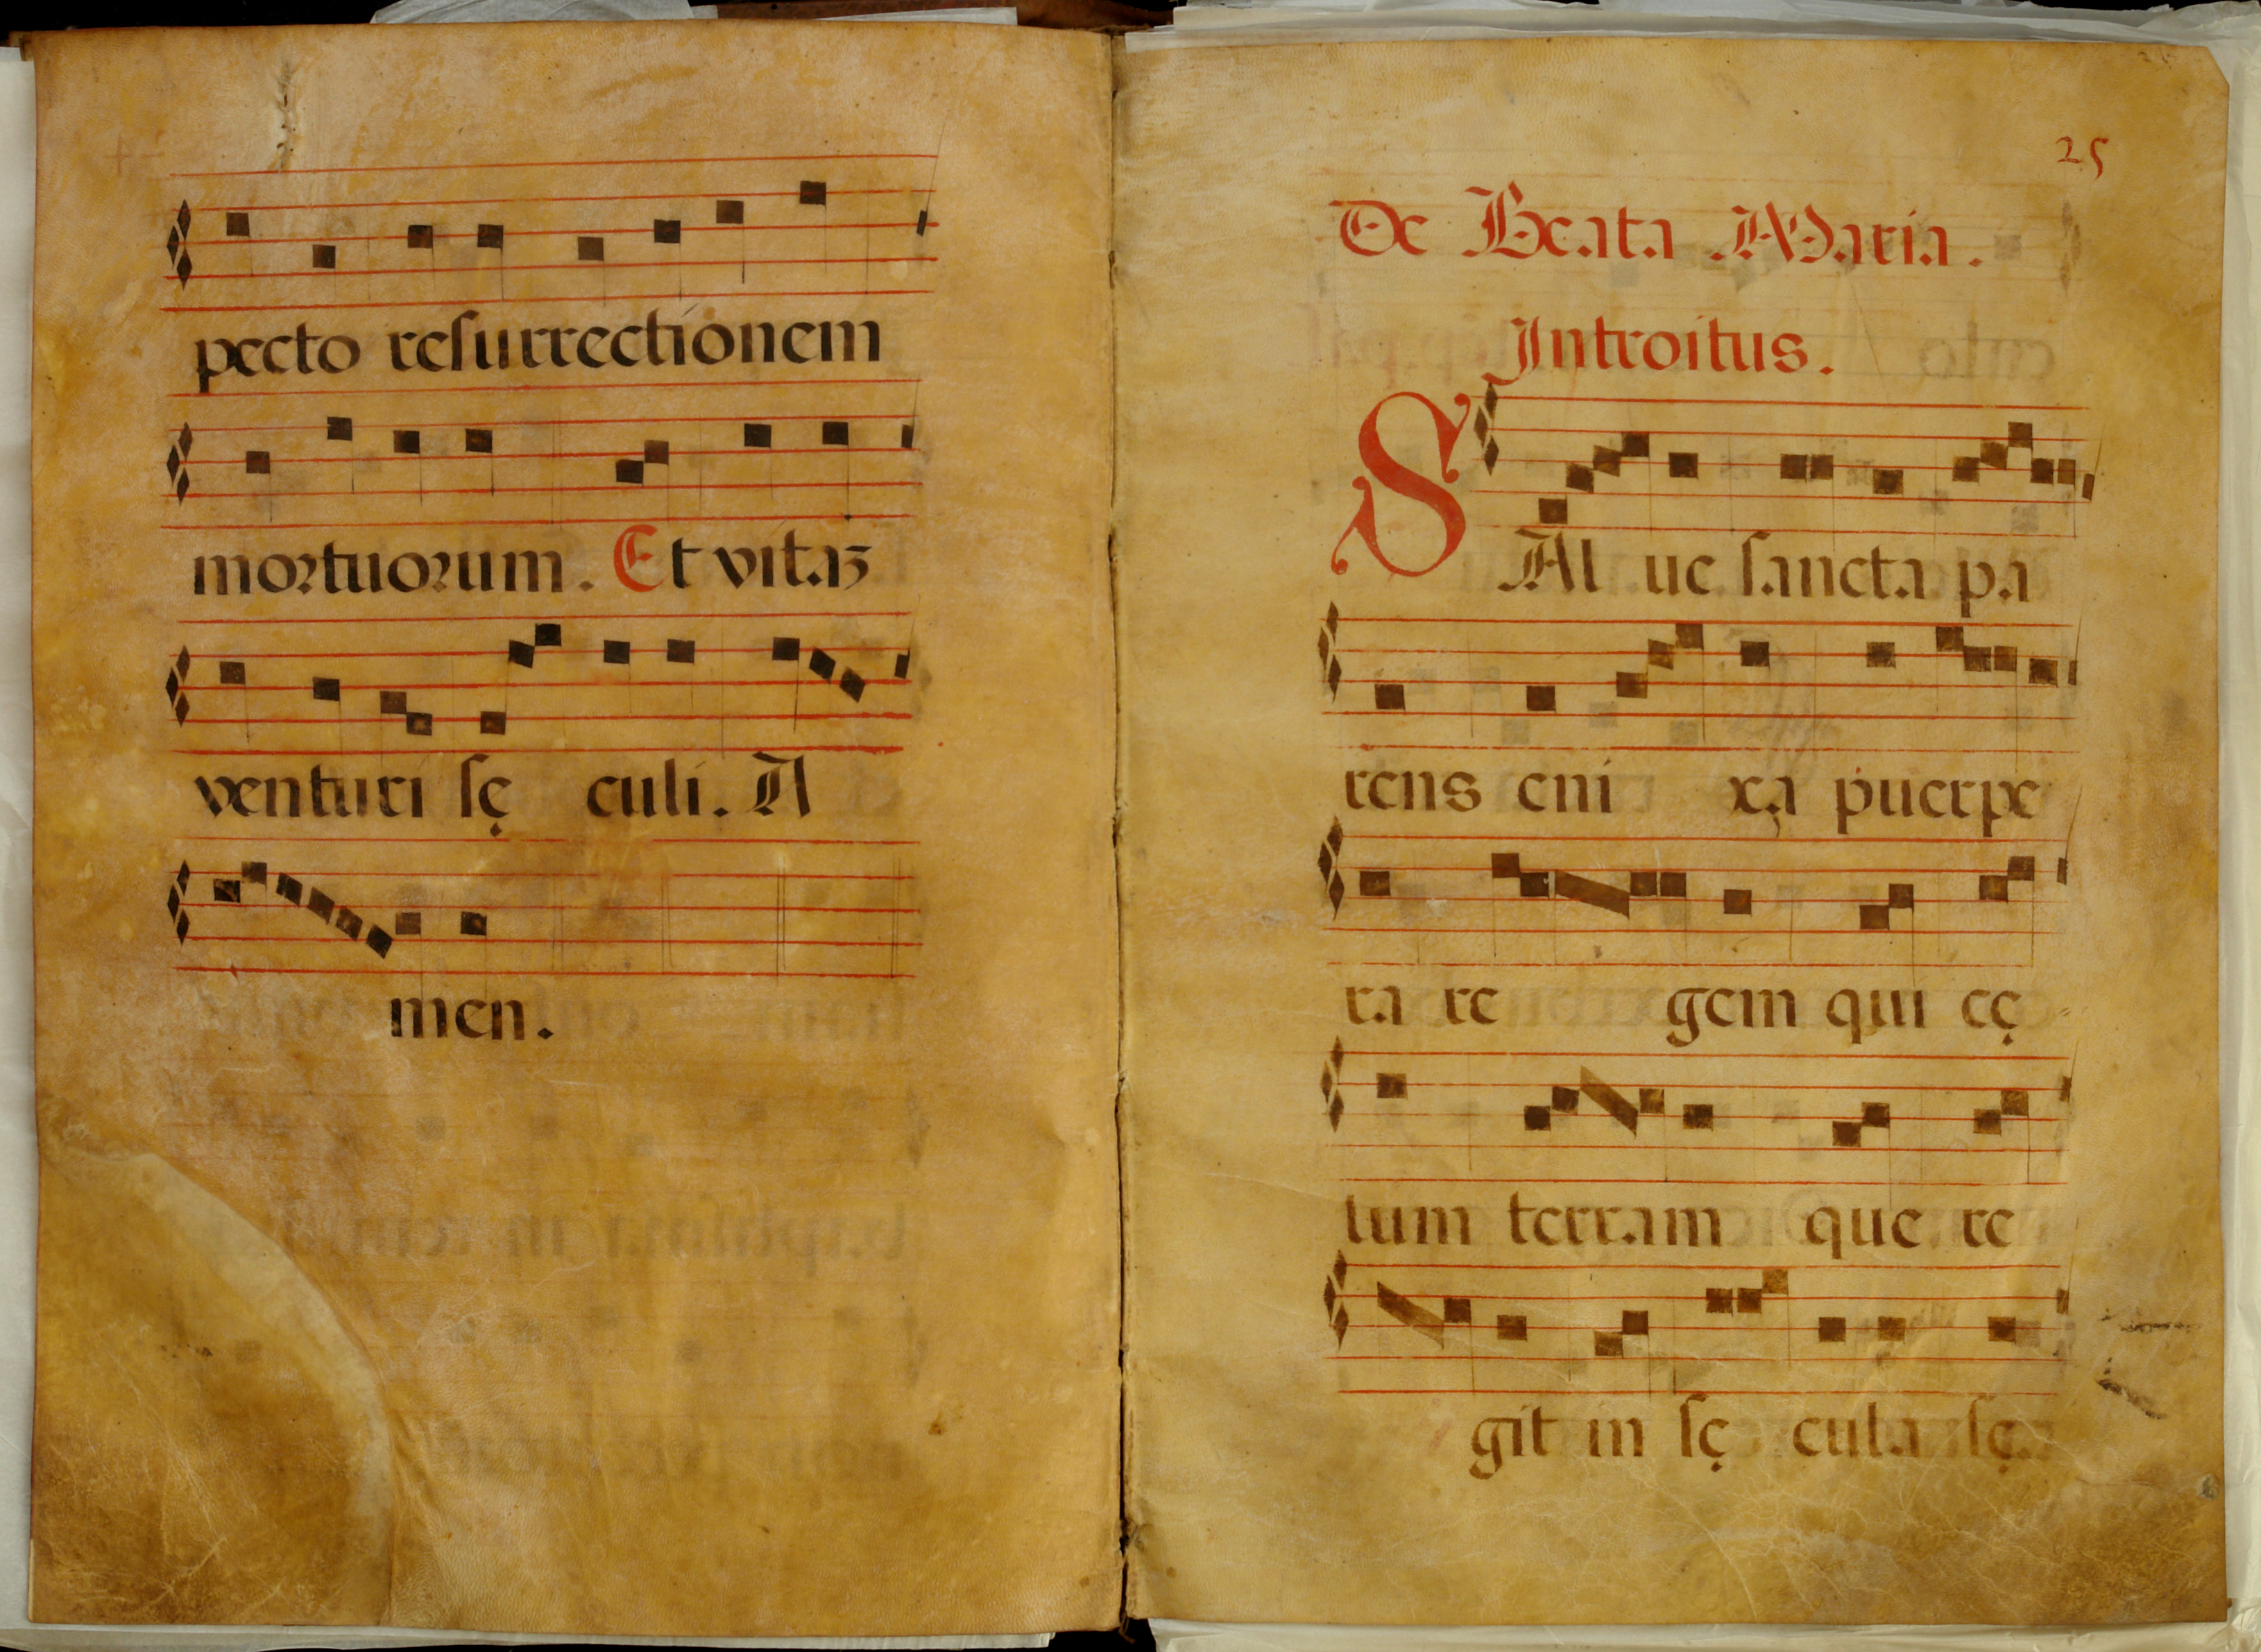 pecto resurrectionem
mortuorum. Et vitaʒ
venturi sę culi. A
men.
25
De Beata Maria.
Introitus.
SAl ue sancta pa
rens eni xa puerpe
ra re gem qui cę
lum terram que re
git in sę cula sę